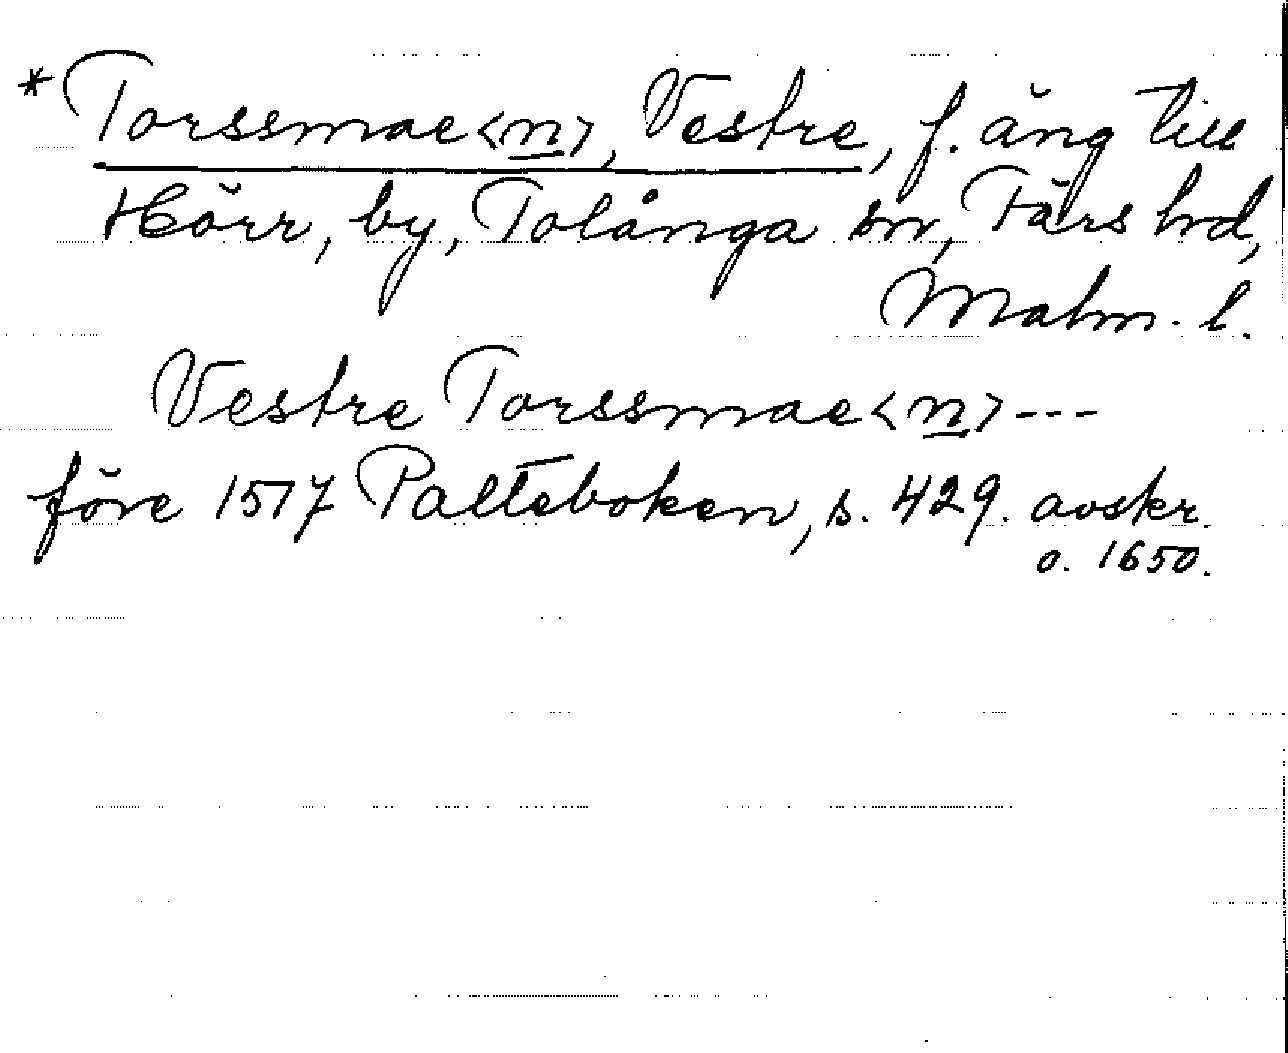 * Torssmae<n>, Vestre, f. äng till
Hörr, by, Tolånga sn, Färs hd,
Malm. l.
Vestre Torssmae<n>---
före 1517 Palteboken, s. 429. avskr.
o. 1650.